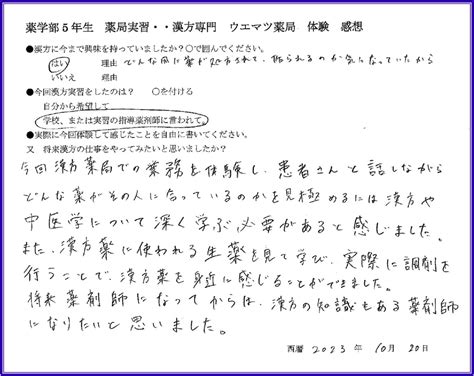 薬学部5年生 薬局実習・・漢方専門 ウエマツ薬局 体験 感想
●漢方に今まで興味を持っていましたか？○で囲んでください。
はい 理由 どんな風に薬が処方されて、売られるのか気になっていたから
いいえ 理由
●今回漢方実習をしたのは？ ○を付ける
自分から希望して
学校、または実習の指導薬剤師に言われて。
●実際に今回体験して感じたことを自由に書いてください。
又 将来漢方の仕事をやってみたいと思いましたか？
今回漢方薬局での業務を体験し、患者さんと話しながら
どんな薬がその人に合っているのかを見極めるには漢方や
中医学について深く学ぶ必要があると感じました。
また、漢方薬に使われる生薬を見て学び、実際に調剤を
行うことで、漢方薬を身近に感じることができました。
将来薬剤師になってからは、漢方の知識もある薬剤師
になりたいと思いました。
西暦 2023 年 10 月 20 日